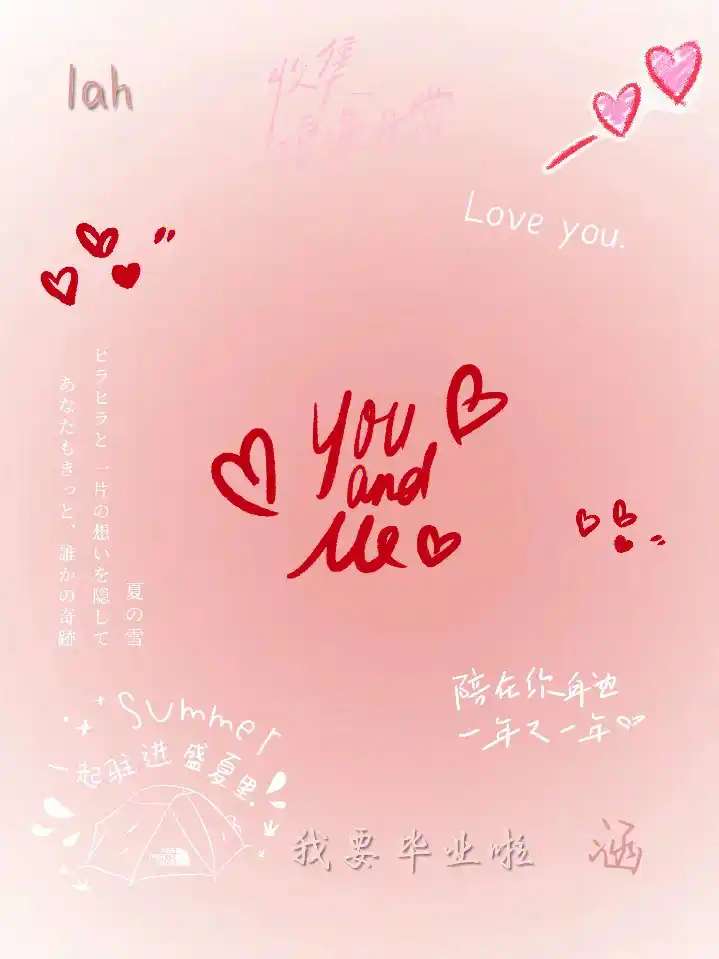 lah
收集
Love you.
You
and
Me
夏の雪
ヒラヒラと 一片の想いを隠して
あなたもきっと、誰かの奇跡
陪在你身边
一年又一年
Summer
一起驻进盛夏里
我要毕业啦
涵